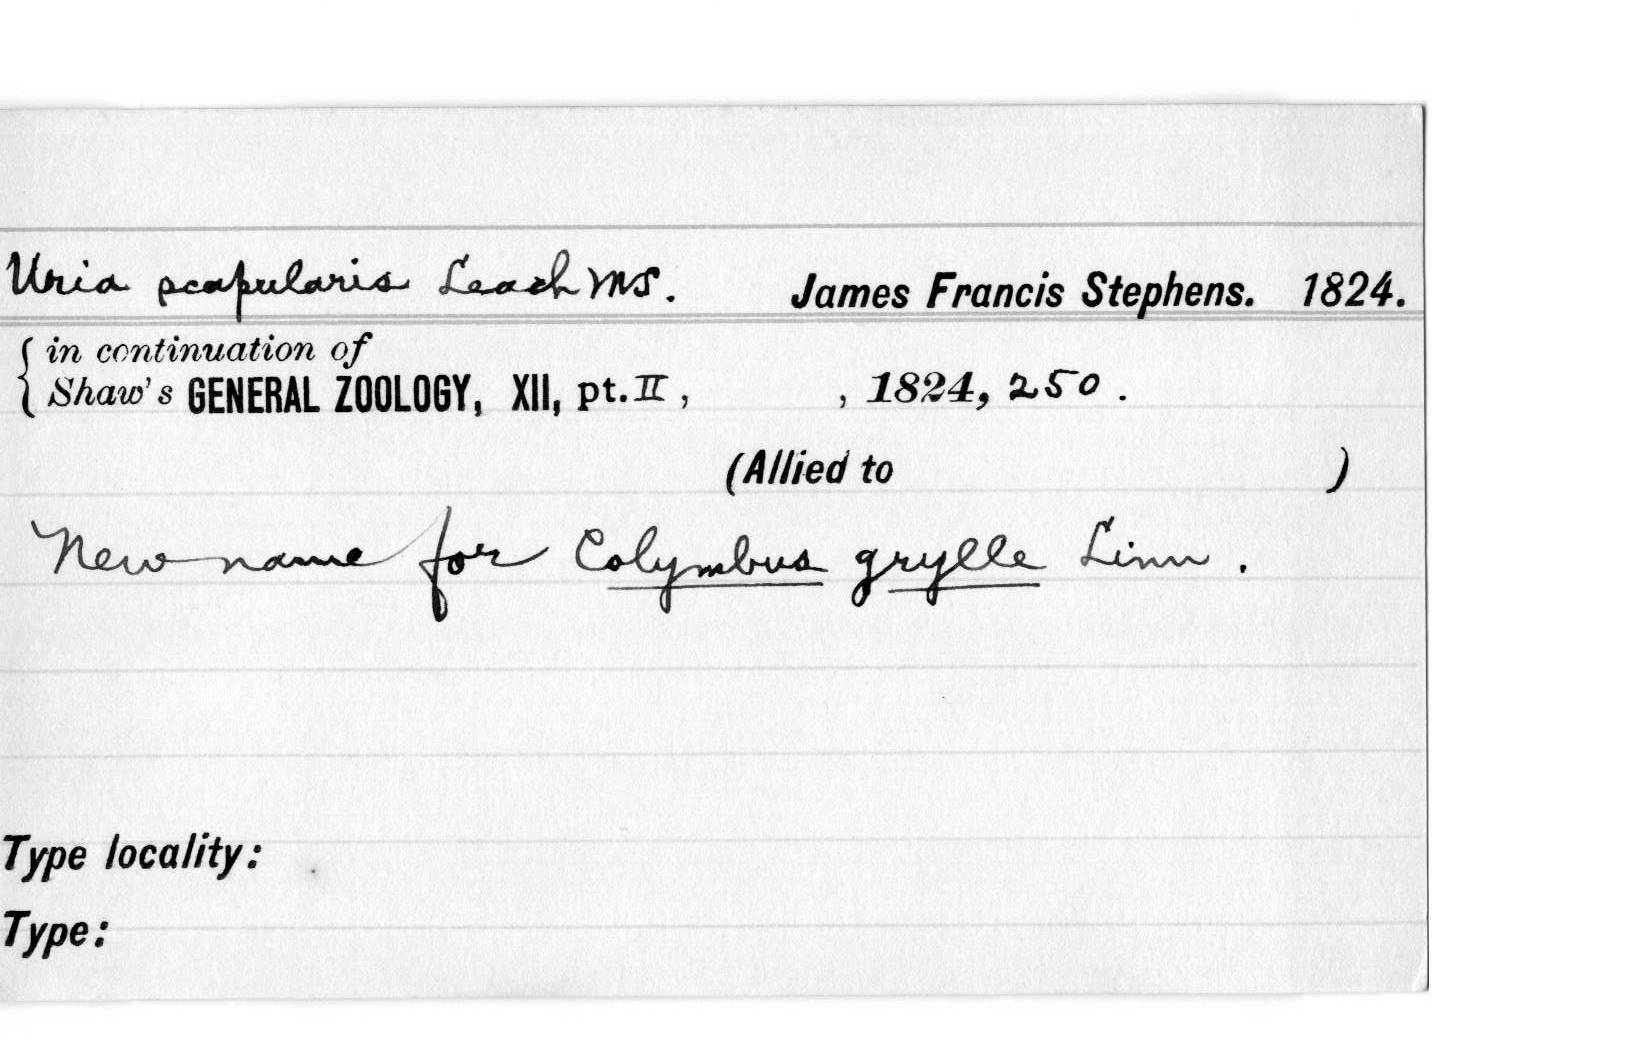 Uria scapularis Leach MS. James Francis Stephens. 1824.
in continuation of
Shaw's GENERAL ZOOLOGY, XII, pt. II, , 1824, 250.
(Allied to )
New name for Colymbus grylle Linn.
Type locality:
Type: